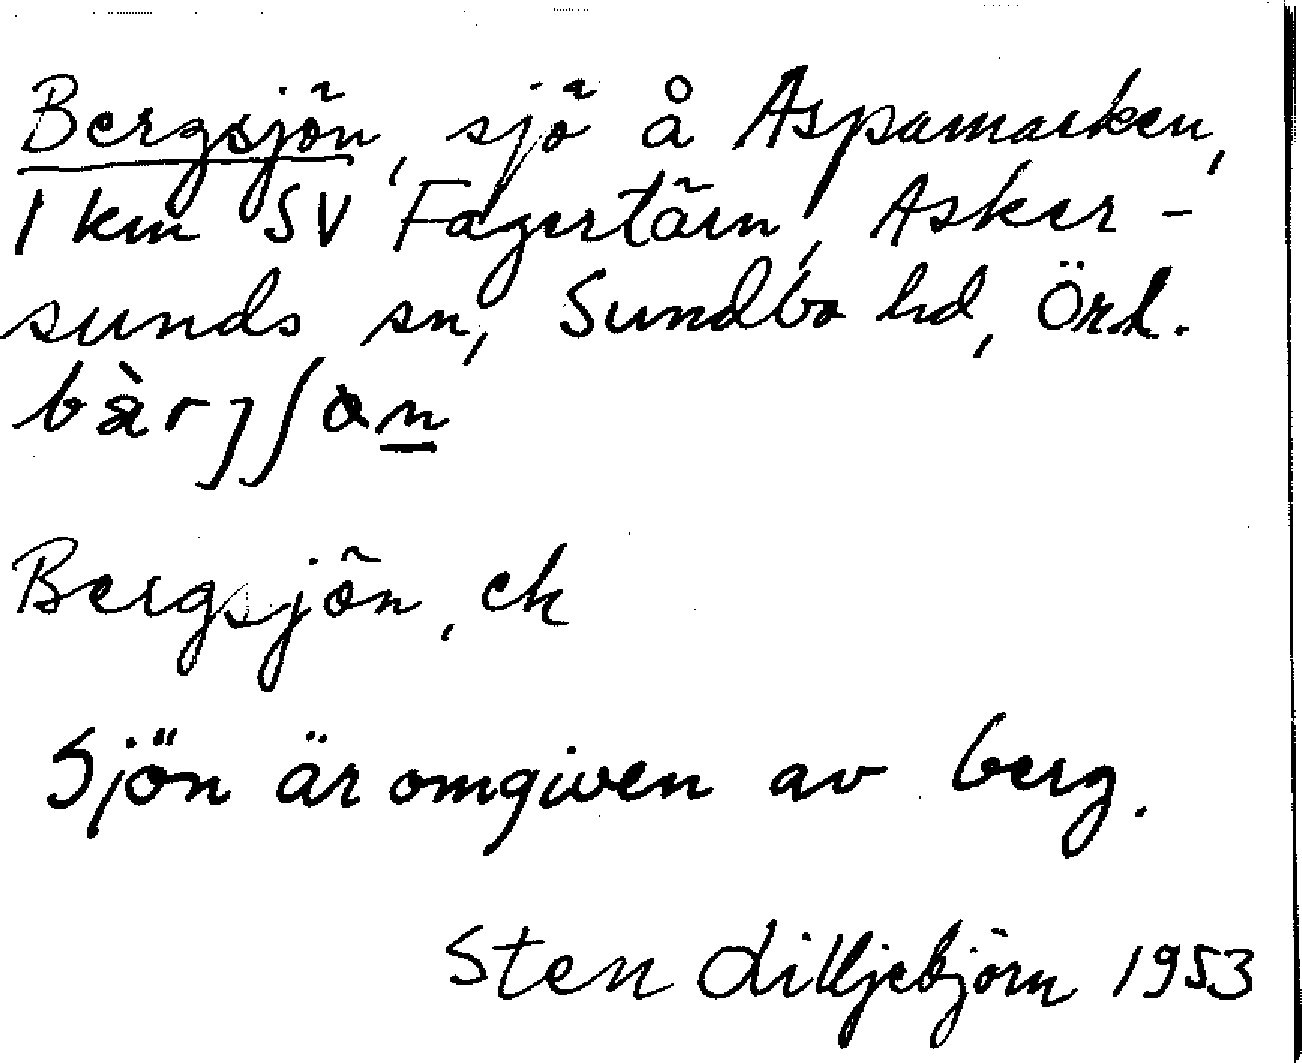 Bergsjön, sjö å Aspamarken,
1 km SV Fagertärn, Asker-
sunds sn, Sundbo hd, Örl.
Bergsjön, ek
Sjön är omgiven av berg.
Sten Lilljebjörn 1953